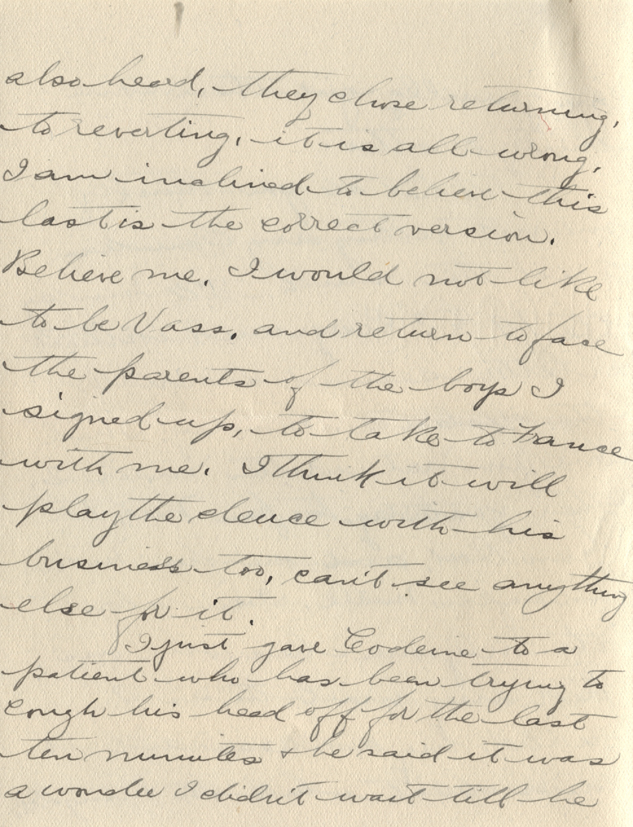 also heard, they chose returning,
to reverting, it is all wrong,
I am inclined to believe this
last is the correct version.
Believe me, I would not like
to be Vass, and return to face
the parents of the boys I
signed up, to take to France
with me. I think it will
play the deuce with his
business too, can't see anything
else for it.
I just gave Codeine to a
patient who has been trying to
cough his head off for the last
ten minutes & he said it was
a wonder I didn't wait till he